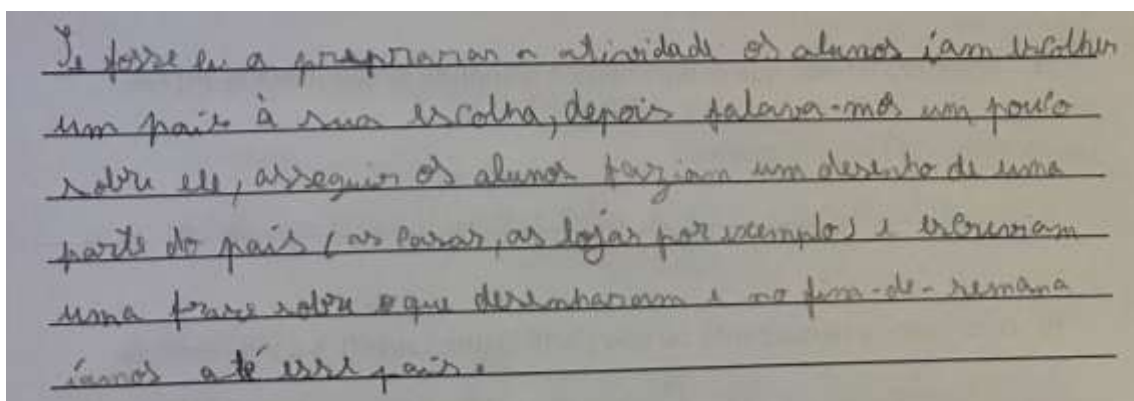 Se fosse eu a prepraran a atividade os alunos íam escolher
um país à sua escolha, depois falava-mos um pouco
sobre ele, asseguir os alunos faziam um desenho de uma
parte do país (as casas, as lojas por exemplo) e escreviam
uma frase sobre o que desenharam e no fim-de-semana
íamos até esse país.